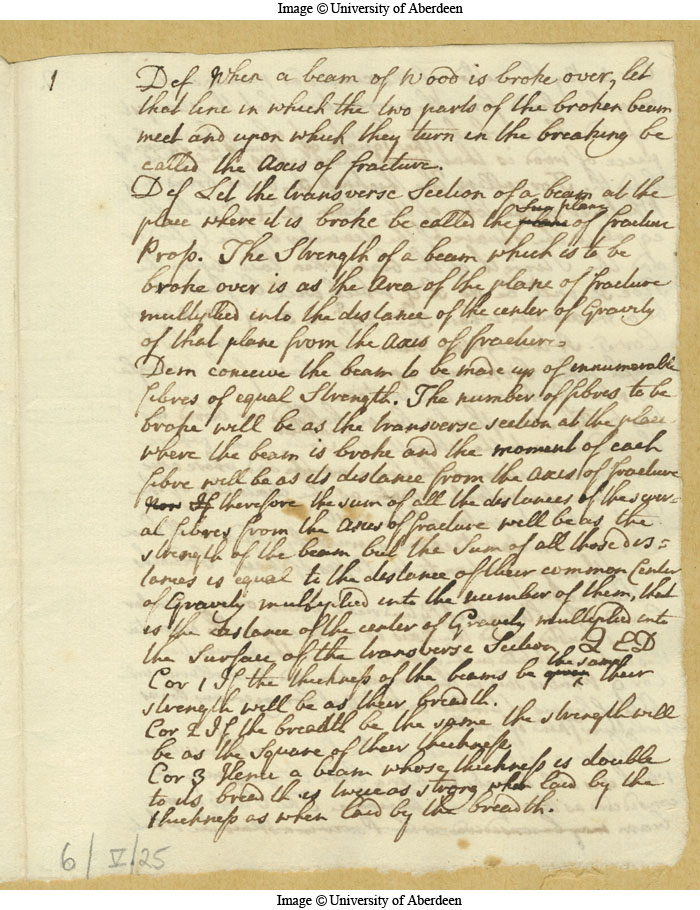 Image © University of Aberdeen
1
Def When a beam of Wood is broke over, let
that line in which the two parts of the broken beam
meet and upon which they turn in the breaking be
called the Axis of fracture.
Def Let the transverse Section of a beam at the
place where it is broke be called the plane of fracture
Prop. The Strength of a beam which is to be
broke over is as the Area of the plane of fracture
multiplied into the distance of the center of Gravity
of that plane from the Axis of fracture.
Dem conceive the beam to be made up of innumerable
fibres of equal Strength. The number of fibres to be
broke will be as the transverse section at the place
where the beam is broke and the moment of each
fibre will be as its distance from the axis of fracture
If therefore the sum of all the distances of the sever-
al fibres from the Axis of fracture will be as the
strength of the beam but the Sum of all those dis=
tances is equal to the distance of their common Center
of Gravity multiplied into the number of them, that
is the distance of the center of Gravity multiplied into
the Surface of the transverse Section Q E D
Cor 1 If the thickness of the beams be the same their
strength will be as their breadth.
Cor 2 If the breadth be the same the strength will
be as the Square of their thickness
Cor 3 Hence a beam whose thickness is double
to its breadth is twice as strong when laid by the
thickness as when laid by the breadth.
6/V/25
Image © University of Aberdeen